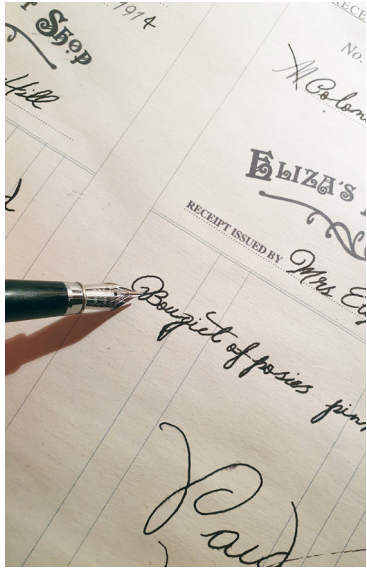 1914
Shop
Hill
RECE
No.
M Colon
ELIZA'S
RECEIPT ISSUED BY Mrs
Bouquet of posies
Paid